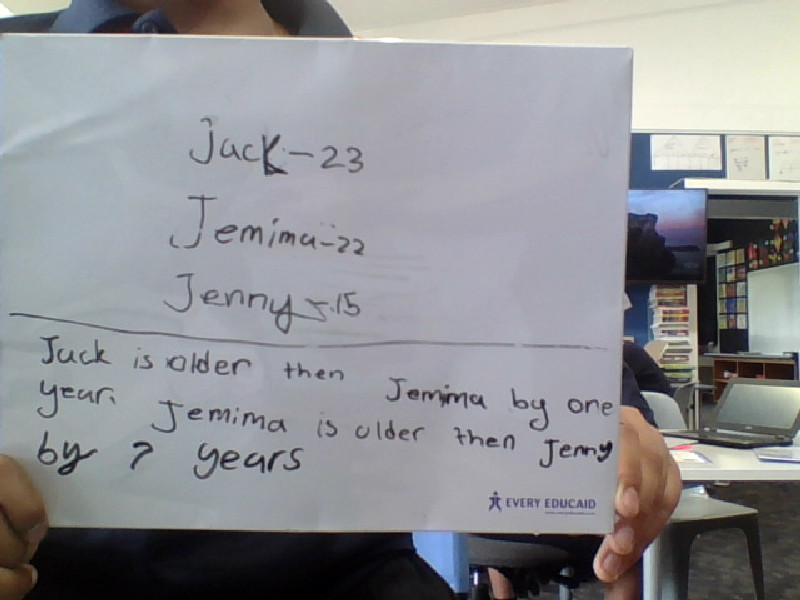 Jack-23
Jemima-22
Jenny-15
Jack is older then Jemima by one
year. Jemima is older then Jenny
by 7 years
EVERY EDUCAID